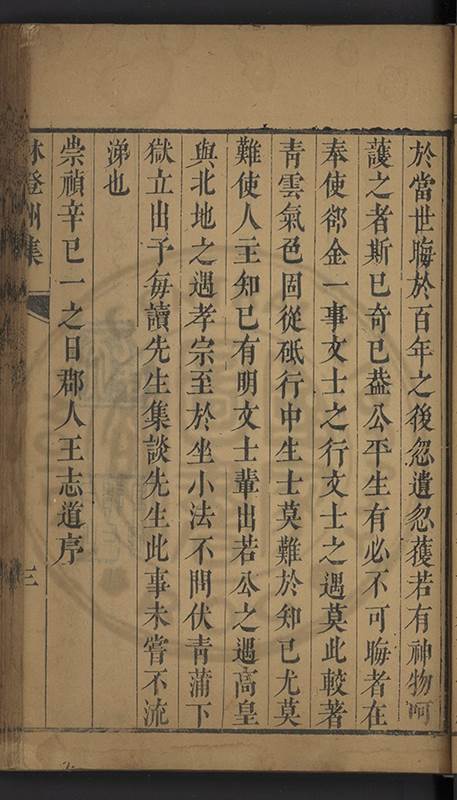 於當世晦於百年之後忽遺忽獲若有神物呵
護之者斯已奇已蓋公平生有必不可晦者在
奉使郤金一事文士之行文士之遇莫此較著
靑雲氣色固從砥行中生士莫難於知已尤莫
難使人主知已有明文士輩出若公之遇高皇
與北地之遇孝宗至於坐小法不問伏靑蒲下
獄立出予每讀先生集談先生此事未嘗不流
涕也
崇禎辛巳一之日郡人王志道序
林登州集
三